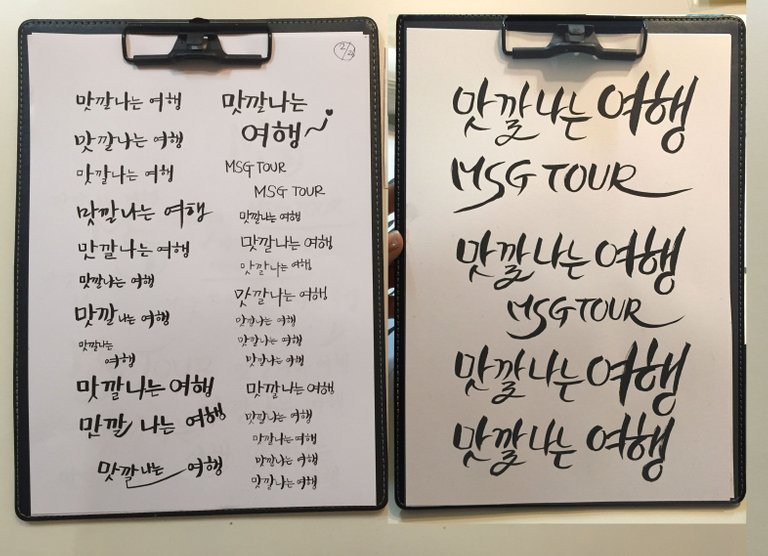 맛깔나는 여행
맛깔나는 여행
맛깔나는 여행
맛깔나는 여행
맛깔나는 여행
맛깔나는 여행
맛깔나는 여행
맛깔나는
여행
맛깔나는 여행
맛깔 나는 여행
맛깔나는 여행
맛깔나는
여행~
MSG TOUR
MSG TOUR
맛깔나는 여행
맛깔나는 여행
맛깔나는 여행
맛깔나는 여행
맛깔나는 여행
맛깔나는 여행
맛깔나는 여행
맛깔나는 여행
맛깔나는 여행
맛깔나는 여행
맛깔나는 여행
맛깔나는 여행
맛깔나는 여행
MSG TOUR
맛깔나는 여행
MSG TOUR
맛깔나는 여행
맛깔나는 여행